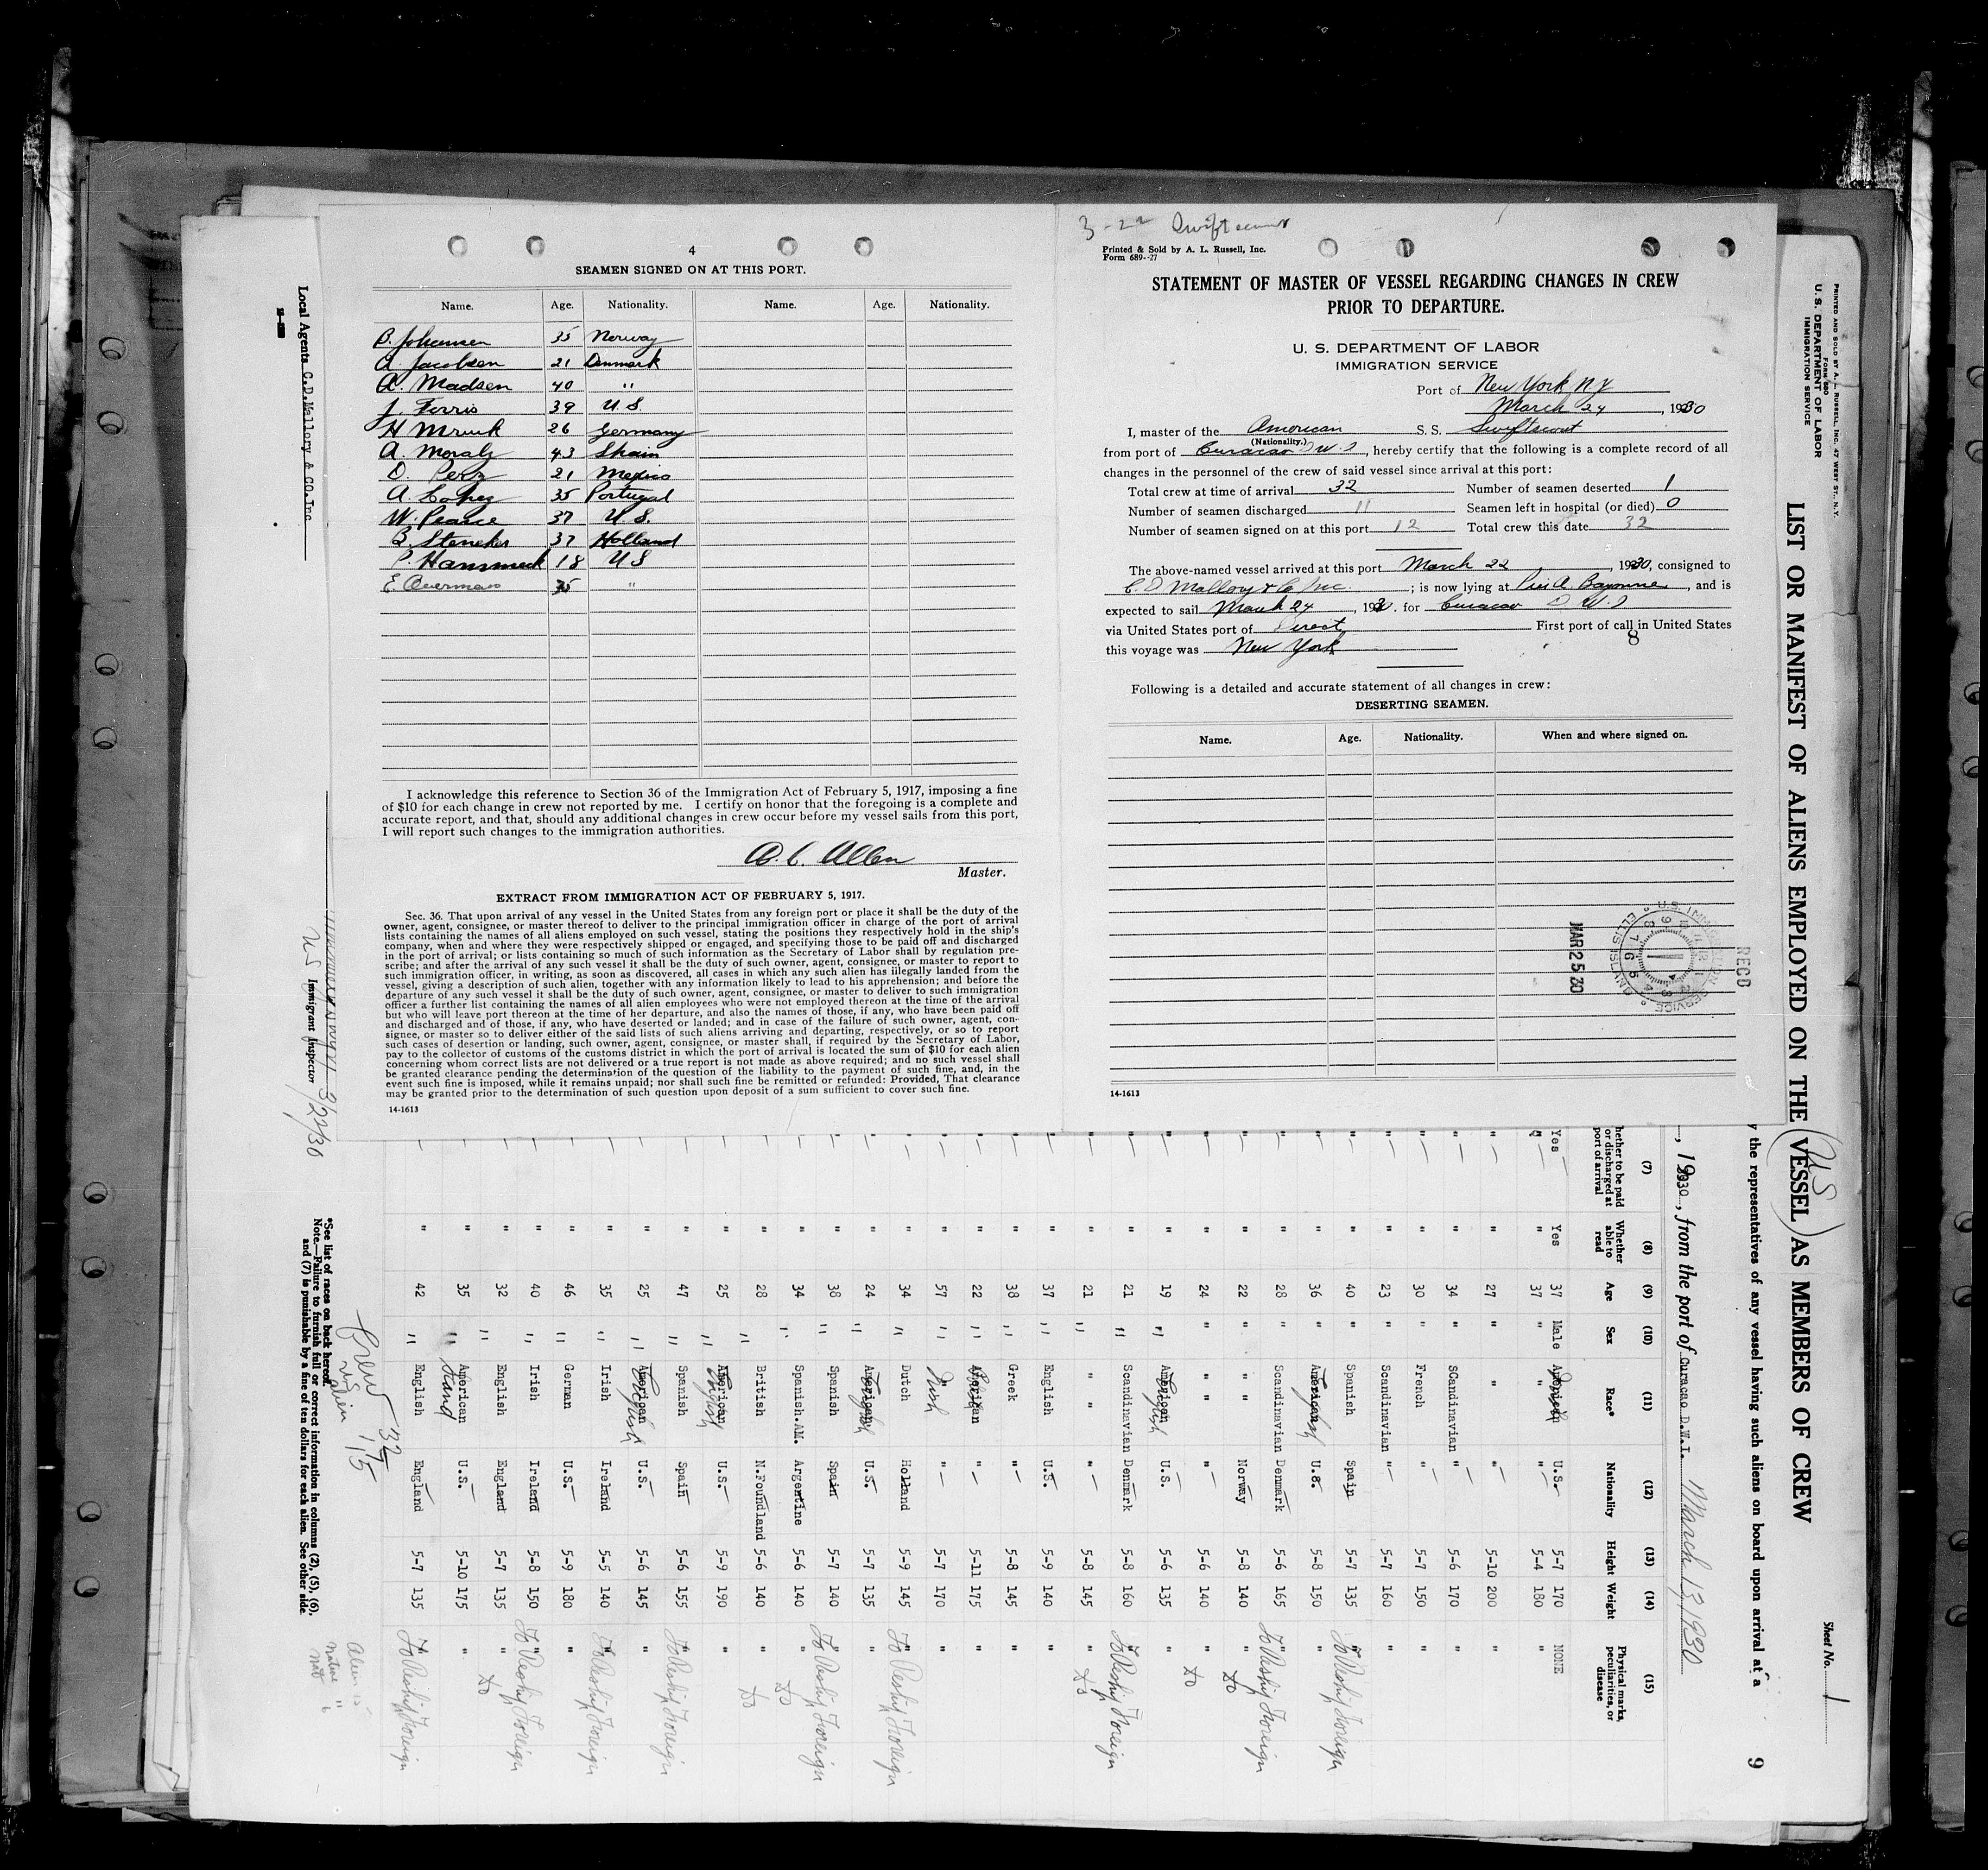 4
SEAMEN SIGNED ON AT THIS PORT.
Name. Age. Nationality. Name. Age. Nationality.
B. Johansen 35 Norway
A. Jacobsen 21 Denmark
A. Madsen 40 "
J. Ferris 39 U.S.
H 26 Germany
A. 43 Spain
O. 21 Mexico
A. Lopez 35 Portugal
W. Pearce 37 U.S.
B. Steneker 37 Holland
P. 18 US
E. Overman 35 "
I acknowledge this reference to Section 36 of the Immigration Act of February 5, 1917, imposing a fine
of $10 for each change in crew not reported by me. I certify on honor that the foregoing is a complete and
accurate report, and that, should any additional changes in crew occur before my vessel sails from this port,
I will report such changes to the immigration authorities.
A. C. Allen
Master.
EXTRACT FROM IMMIGRATION ACT OF FEBRUARY 5, 1917.
Sec. 36. That upon arrival of any vessel in the United States from any foreign port or place it shall be the duty of the
owner, agent, consignee, or master thereof to deliver to the principal immigration officer in charge of the port of arrival
lists containing the names of all aliens employed on such vessel, stating the positions they respectively hold in the ship's
company, when and where they were respectively shipped or engaged, and specifying those to be paid off and discharged
in the port of arrival; or lists containing so much of such information as the Secretary of Labor shall by regulation pre-
scribe; and after the arrival of any such vessel it shall be the duty of such owner, agent, consignee, or master to report to
such immigration officer, in writing, as soon as discovered, all cases in which any such alien has illegally landed from the
vessel, giving a description of such alien, together with any information likely to lead to his apprehension; and before the
departure of any such vessel it shall be the duty of such owner, agent, consignee, or master to deliver to such immigration
officer a further list containing the names of all alien employees who were not employed thereon at the time of the arrival
but who will leave port thereon at the time of her departure, and also the names of those, if any, who have been paid off
and discharged and of those, if any, who have deserted or landed; and in case of the failure of such owner, agent, con-
signee, or master so to deliver either of the said lists of such aliens arriving and departing, respectively, or so to report
such cases of desertion or landing, such owner, agent, consignee, or master shall, if required by the Secretary of Labor,
pay to the collector of customs of the customs district in which the port of arrival is located the sum of $10 for each alien
concerning whom correct lists are not delivered or a true report is not made as above required; and no such vessel shall
be granted clearance pending the determination of the question of the liability to the payment of such fine, and, in the
event such fine is imposed, while it remains unpaid; nor shall such fine be remitted or refunded: Provided, That clearance
may be granted prior to the determination of such question upon deposit of a sum sufficient to cover such fine.
14-1613
3-22 Swiftscout
Printed & Sold by A. L. Russell, Inc.
Form 689-27
STATEMENT OF MASTER OF VESSEL REGARDING CHANGES IN CREW
PRIOR TO DEPARTURE.
U. S. DEPARTMENT OF LABOR
IMMIGRATION SERVICE
Port of New York NY
March 24, 1930
I, master of the American S. S. Swiftscout
(Nationality.)
from port of Curacao D W I, hereby certify that the following is a complete record of all
changes in the personnel of the crew of said vessel since arrival at this port:
Total crew at time of arrival 32 Number of seamen deserted 1
Number of seamen discharged 11 Seamen left in hospital (or died) 0
Number of seamen signed on at this port 12 Total crew this date 32
The above-named vessel arrived at this port March 22, 1930, consigned to
C. D Mallory & Co Inc.; is now lying at Pier A. Bayonne, and is
expected to sail March 24, 1930. for Curacao D W I
via United States port of Direct First port of call in United States
this voyage was New York 8
Following is a detailed and accurate statement of all changes in crew:
DESERTING SEAMEN.
Name. Age. Nationality. When and where signed on.
RECD
U.S. IMMIGRATION SERVICE ELLIS ISLAND
MAR 25 30
14-1613
PRINTED AND SOLD BY A. L. RUSSELL, INC. 47 WEST ST., N.Y.
FORM 680
U. S. DEPARTMENT OF LABOR
IMMIGRATION SERVICE
Sheet No. 1
LIST OR MANIFEST OF ALIENS EMPLOYED ON THE (VESSEL) AS MEMBERS OF CREW
US
y the representatives of any vessel having such aliens on board upon arrival at a
9
, 1930, from the port of Curacao D.W.I. March 13, 1930
(7) (8) (9) (10) (11) (12) (13) (14) (15)
hether to be paid or discharged at port of arrival Whether able to read Age Sex Race* Nationality Height Weight Physical marks, peculiarities, or disease
Yes Yes 37 Male U.S. 5-7 170 NONE
" " 37 " " " 5-4 180 "
" " 27 " " " 5-10 200 "
" " 34 " SCandinavian " 5-6 170 "
" " 30 " French " 5-7 150 "
" " 23 " Scandinavian " 5-7 160 "
" " 40 " Spanish Spain 5-7 135 " To Reship Foreign
" " 36 " American English U.S. 5-8 150 "
" " 28 " Scandinavian Denmark 5-6 165 " To Reship Foreign
" " 22 " " Norway 5-8 140 " Do
" " 24 " " " 5-6 140 " Do
" " 19 " American English U.S. 5-6 135 "
" " 21 " Scandinavian Denmark 5-8 160 " To Reship Foreign
" " 21 " " " 5-8 145 " Do
" " 37 " English U.S. 5-9 140 "
" " 38 " Greek " 5-8 145 "
" " 22 " American " 5-11 175 "
" " 57 " Irish " 5-7 170 "
" " 34 " Dutch Holland 5-9 145 " To Reship Foreign
" " 24 " American English U.S. 5-7 135 "
" " 38 " Spanish Spain 5-7 140 " To Reship Foreign
" " 34 " Spanish.AM. Argentine 5-6 140 " Do
" " 28 " British N.Foundland 5-6 140 " Do
" " 25 " American English U.S. 5-9 190 "
" " 47 " Spanish Spain 5-6 155 " To Reship Foreign
" " 25 " American English U.S. 5-6 145 "
" " 35 " Irish Ireland 5-5 140 " To Reship Foreign
" " 46 " German U.S. 5-9 180 "
" " 40 " Irish Ireland 5-8 150 " To Reship Foreign
" " 32 " English England 5-7 135 " Do
" " 35 " American U.S. 5-10 175 "
" " 42 " English England 5-7 135 " To Reship Foreign
Crew 32
US 17
alien 15
*See list of races on back hereof.
Note.—Failure to furnish full or correct information in columns (2), (5), (6),
and (7) is punishable by a fine of ten dollars for each alien. See other side.
Local Agents C.D.Mallory & CO.Inc
US Immigrant Inspector 3/22/30